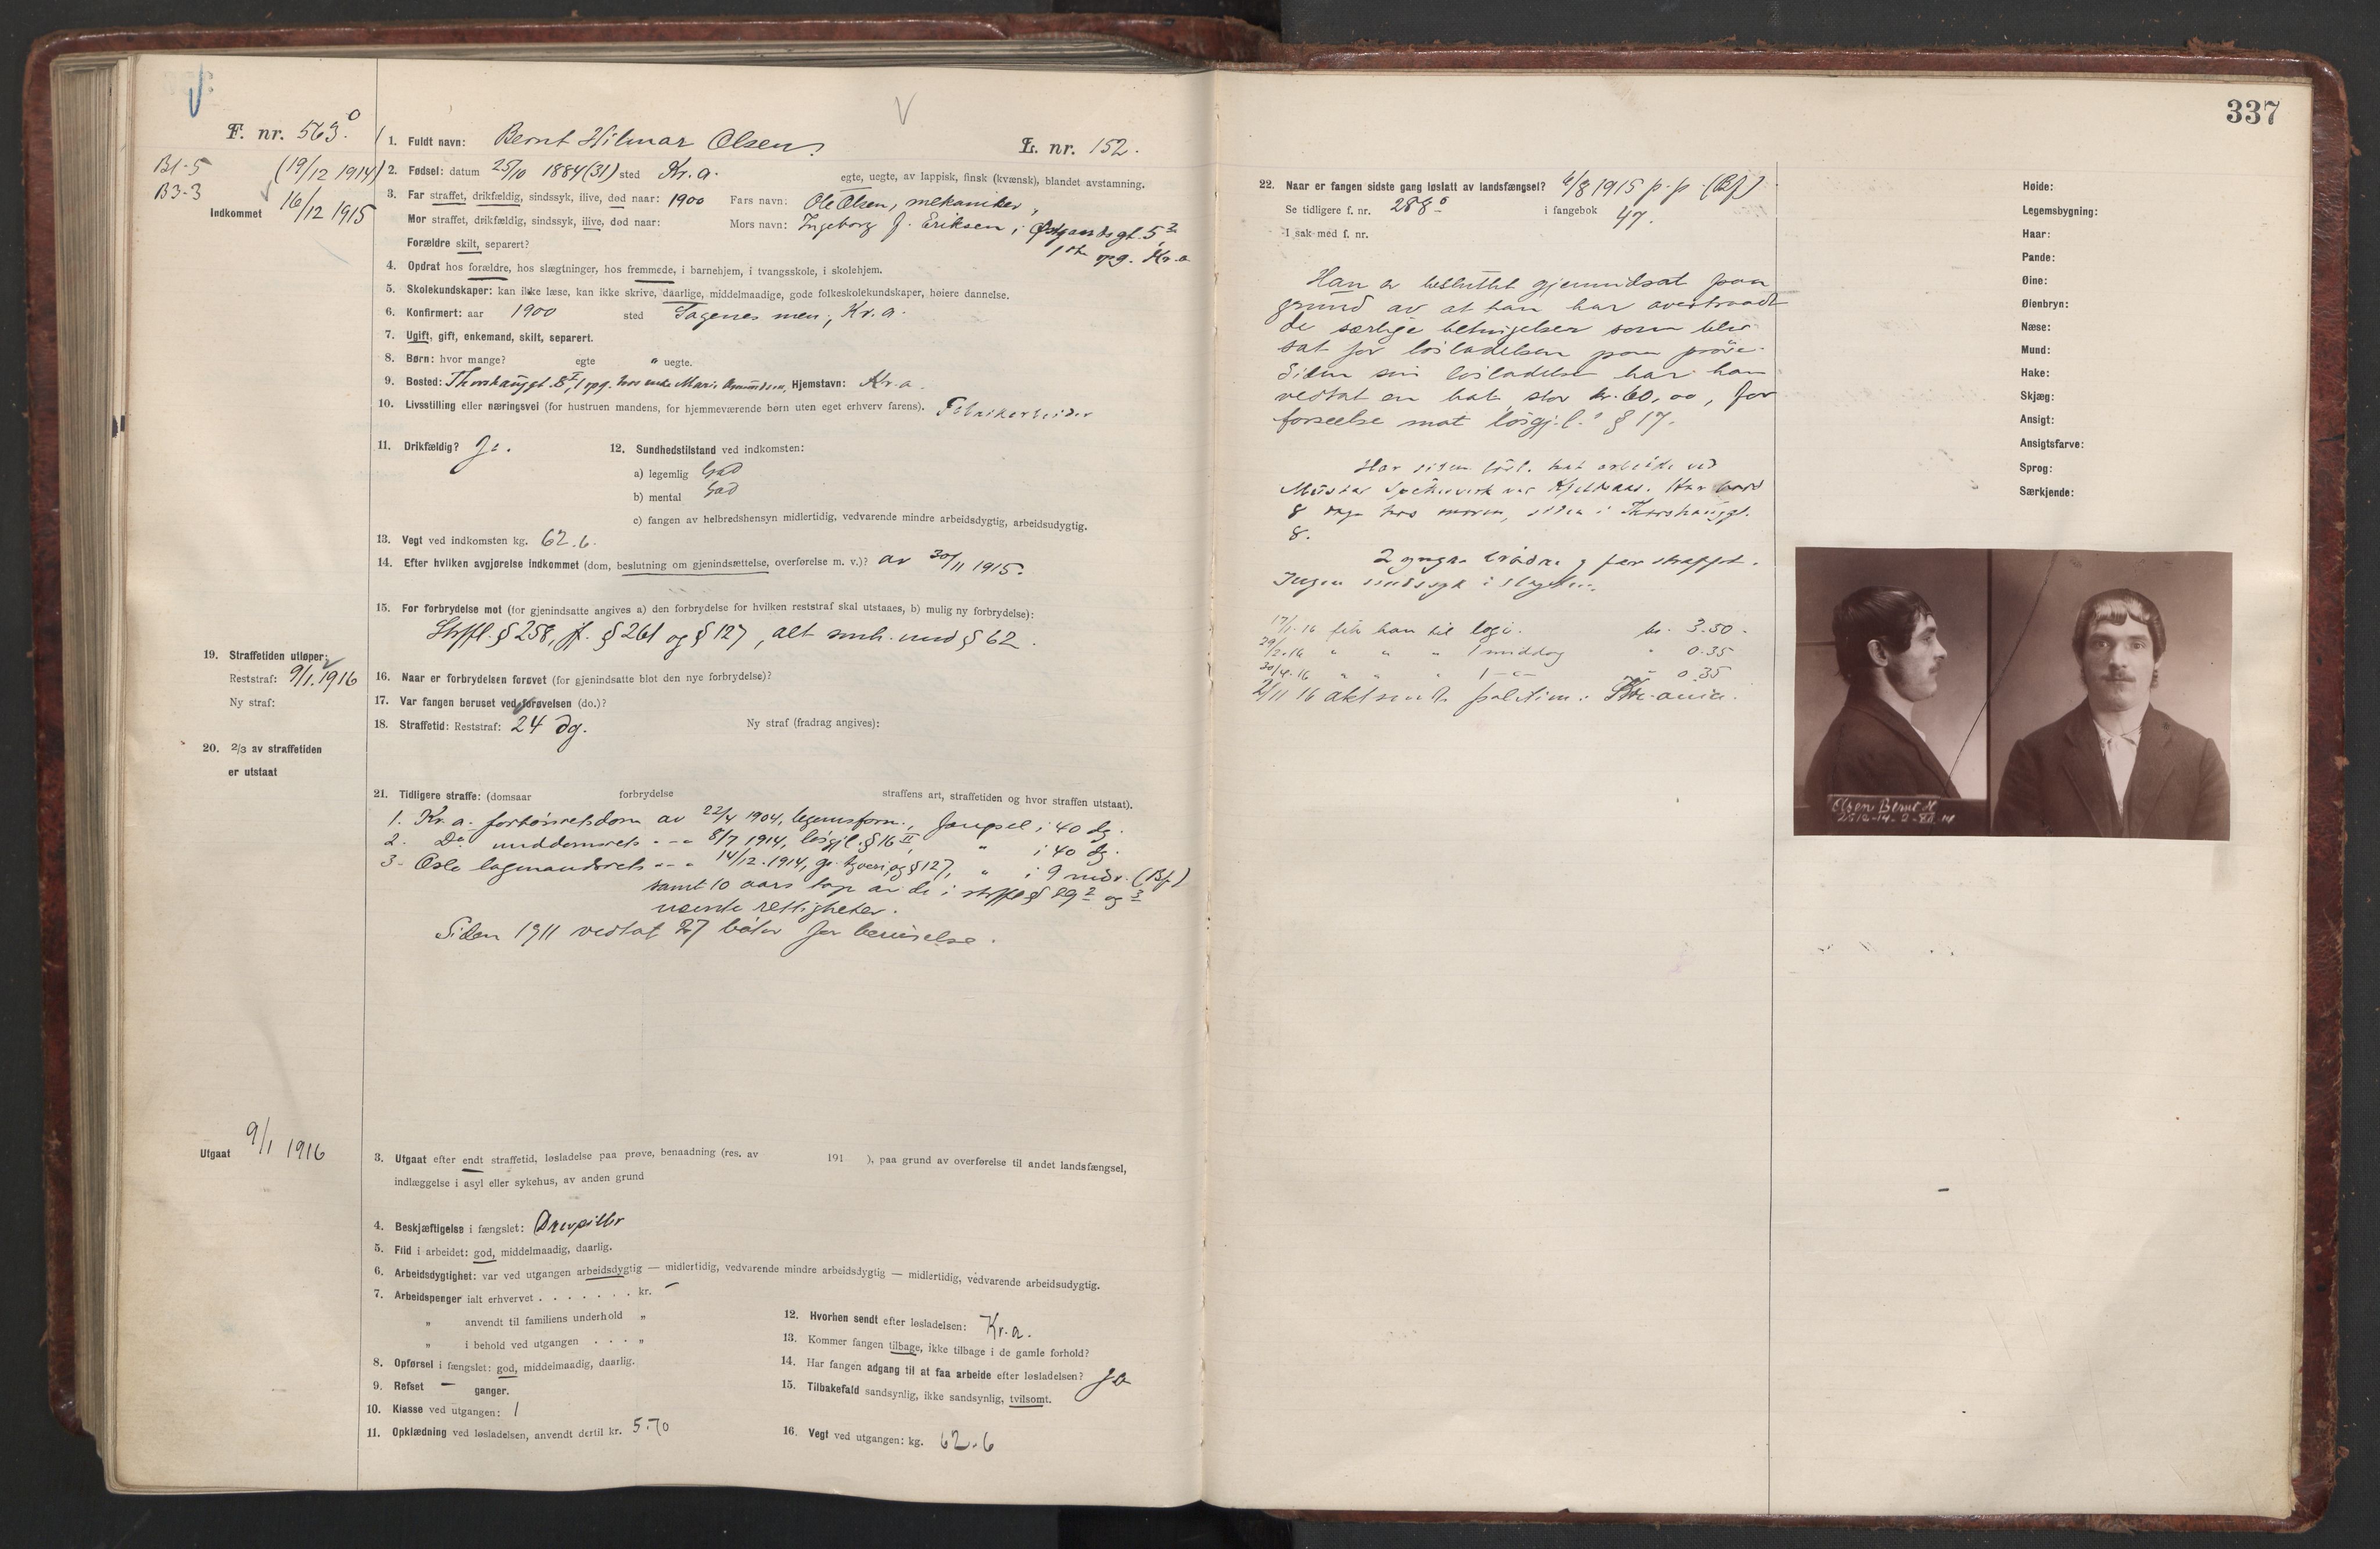 F. nr. 563.
B1-5
B3-3
(19/12 1914)
Indkommet 16/12 1915
1. Fuldt navn: Bernt Hilmar Olsen.
L. nr. 152.
2. Fødsel: datum 25/10 1884 (31) sted Kr.a.
egte, uegte, av lappisk, finsk (kvænsk), blandet avstamning.
3. Far straffet, drikfældig, sindssyk, ilive, død naar: 1900 Fars navn: Ole Olsen, mekaniker,
Mor straffet, drikfældig, sindssyk, ilive, død naar: Mors navn: Ingeborg f. Eriksen,
opg. Kr.a
Forældre skilt, separert?
4. Opdrat hos forældre, hos slægtninger, hos fremmede, i barnehjem, i tvangsskole, i skolehjem.
5. Skolekundskaper: kan ikke læse, kan ikke skrive, daarlige, middelmaadige, gode folkeskolekundskaper, høiere dannelse.
6. Konfirmert: aar 1900 sted Sagenes men., Kr.a.
7. Ugift, gift, enkemand, skilt, separert.
8. Børn: hvor mange? egte " uegte.
9. Bosted: Thorshauggt. 8 I, 1 opg. hos enke Marie Amundsen, Hjemstavn: Kr.a.
10. Livsstilling eller næringsvei (for hustruen mandens, for hjemmeværende børn uten eget erhverv farens). Fabrikarbeider
11. Drikfældig? Ja.
12. Sundhedstilstand ved indkomsten:
a) legemlig God
b) mental God
c) fangen av helbredshensyn midlertidig, vedvarende mindre arbeidsdygtig, arbeidsudygtig.
13. Vegt ved indkomsten kg. 62.6.
14. Efter hvilken avgjørelse indkommet (dom, beslutning om gjenindsættelse, overførelse m. v.)? av 30/11 1915.
15. For forbrydelse mot (for gjenindsatte angives a) den forbrydelse for hvilken reststraf skal utstaaes, b) mulig ny forbrydelse):
Strffl. § 258, jf. § 261 og § 127, alt smh. med § 62.
19. Straffetiden utløper:
Reststraf: 9/1. 1916
Ny straf:
16. Naar er forbrydelsen forøvet (for gjenindsatte blot den nye forbrydelse)?
17. Var fangen beruset ved forøvelsen (do.)?
18. Straffetid: Reststraf: 24 dg. Ny straf (fradrag angives):
20. 2/3 av straffetiden
er utstaat
21. Tidligere straffe: (domsaar forbrydelse straffens art, straffetiden og hvor straffen utstaat).
1. Kr.a. forhörsretsdom av 22/4 1904, legemsforn., fængsel i 40 dg.
2. Do meddomsrets - - - 8/7 1914, løsgjl. § 16 II, " i 40 dg.
3- Oslo lagmandsrets - - - 14/12. 1914, gr. tyveri og § 127, " i 9 mdr. (Bf)
samt 10 aars tap av de i strffl § 29 2 og 3
nevnte rettigheter.
Siden 1911 vedtat 27 bøter for beruselse.
Utgaat 9/1 1916
3. Utgaat efter endt straffetid, løsladelse paa prøve, benaadning (res. av 191 ), paa grund av overførelse til andet landsfængsel,
indlæggelse i asyl eller sykehus, av anden grund
4. Beskjæftigelse i fængslet: Drevpiller
5. Flid i arbeidet: god, middelmaadig, daarlig.
6. Arbeidsdygtighet: var ved utgangen arbeidsdygtig — midlertidig, vedvarende mindre arbeidsdygtig — midlertidig, vedvarende arbeidsudygtig.
7. Arbeidspenger ialt erhvervet . . . . . . . kr. —
" anvendt til familiens underhold "
" i behold ved utgangen . . . "
8. Opførsel i fængslet: god, middelmaadig, daarlig.
9. Refset — ganger.
10. Klasse ved utgangen: 1
11. Opklædning ved løsladelsen, anvendt dertil kr. 5.70
12. Hvorhen sendt efter løsladelsen: Kr.a.
13. Kommer fangen tilbage, ikke tilbage i de gamle forhold?
14. Har fangen adgang til at faa arbeide efter løsladelsen? Ja
15. Tilbakefald sandsynlig, ikke sandsynlig, tvilsomt.
16. Vegt ved utgangen: kg. 62.6
337
22. Naar er fangen sidste gang løslatt av landsfængsel? 6/8 1915 p. p. (Bf)
Se tidligere f. nr. 288 i fangebok 47.
I sak med f. nr.
Han er besluttet gjenindsat paa
grund av at han har overtraadt
de særlige betingelser som blev
sat for løsladelsen paa prøve.
Siden sin løsladelse har han
vedtat en bot stor kr. 60,00, for
forseelse mot løsgj.l.s § 17.
Har siden løsl. hat arbeide ved
Mustad Spikerverk ved Kjelsaas. Har bodd
8 dage hos moren, siden i Thorshauggt.
8.
2 yngre brødre og far straffet.
Ingen sindssyk i slegten.
17/1-16 fik han til logi. kr. 3.50.
29/2-16 " " " 1 middag " 0.35
30/4-16 " " " 1 -"- " 0.35
2/11 16 akt sendt politim. i Kr.ania.
Høide:
Legemsbygning:
Haar:
Pande:
Øine:
Øienbryn:
Næse:
Mund:
Hake:
Skjæg:
Ansigt:
Ansigtsfarve:
Sprog:
Særkjende:
Olsen Bernt H